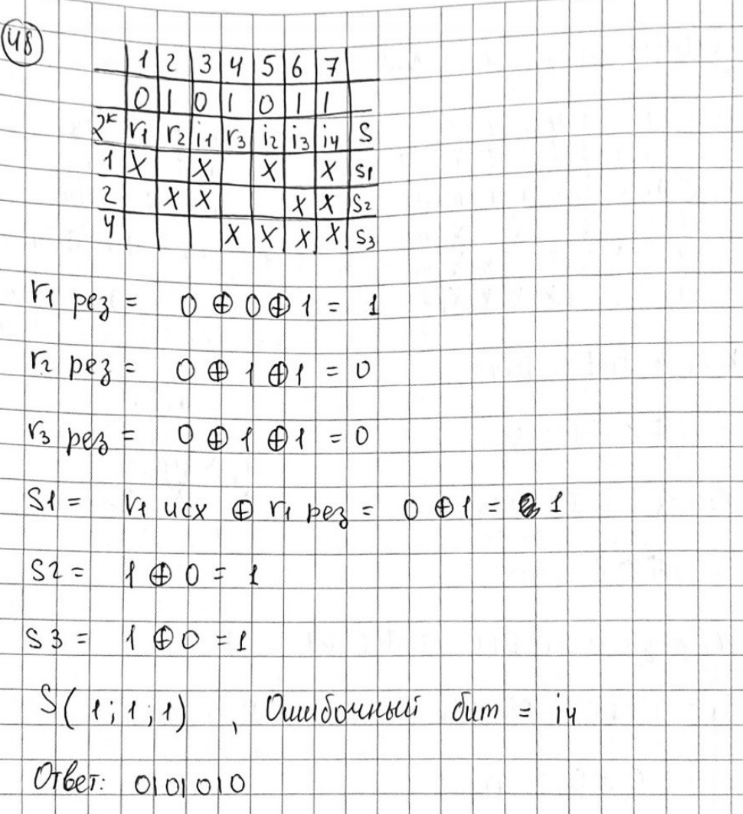 48
1 2 3 4 5 6 7
0 1 0 1 0 1 1
2ᴷ r₁ r₂ i₁ r₃ i₂ i₃ i₄ S
1 X X X X S₁
2 X X X X S₂
4 X X X X S₃
r₁ рез = 0 ⊕ 0 ⊕ 1 = 1
r₂ рез = 0 ⊕ 1 ⊕ 1 = 0
r₃ рез = 0 ⊕ 1 ⊕ 1 = 0
S1 = r₁ исх ⊕ r₁ рез = 0 ⊕ 1 = 1
S2 = 1 ⊕ 0 = 1
S3 = 1 ⊕ 0 = 1
S(1;1;1), Ошибочный бит = i₄
Ответ: 0101010